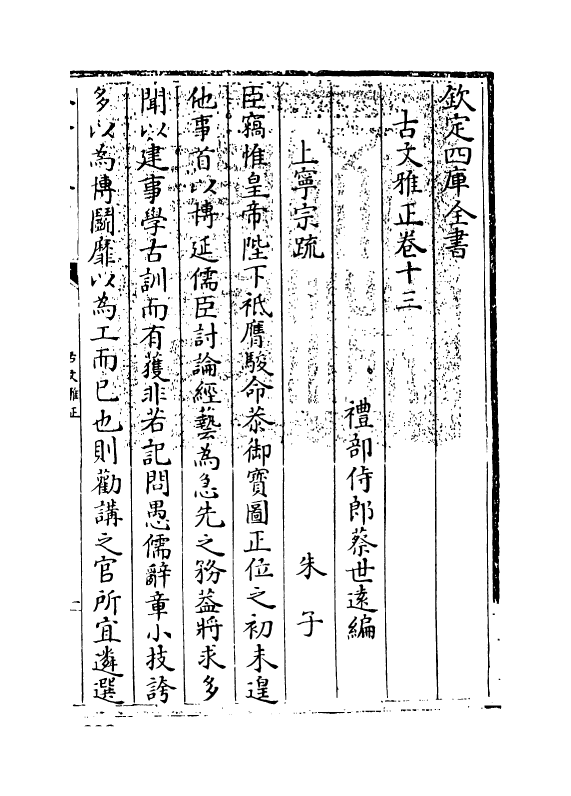 欽定四庫全書
古文雅正卷十三
禮部侍郎蔡世遠編
上寧宗疏 朱子
臣竊惟皇帝陛下祗膺駿命恭御寶圖正位之初未遑
他事首以博延儒臣討論經藝為急先之務葢將求多
聞以建事學古訓而有獲非若記問愚儒辭章小技誇
多以為博鬭靡以為工而已也則勸講之官所宜遴選
古文雅正